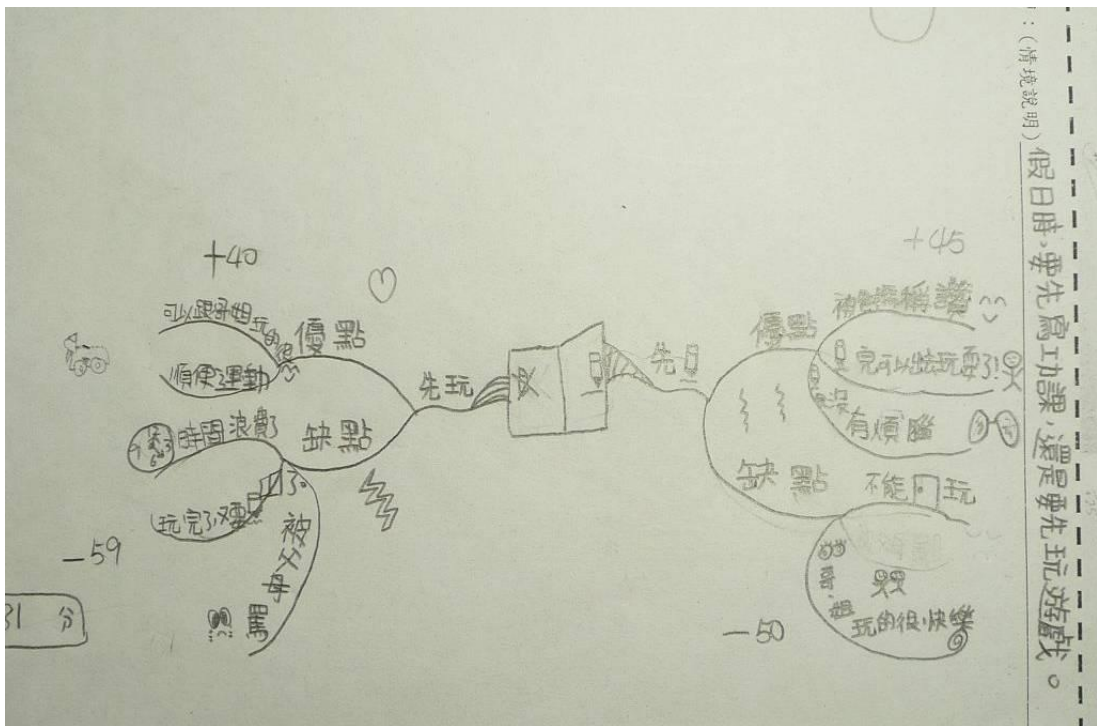 ：（情境說明）假日時，要先寫工功課，還是要先玩遊戲。
+40
可以跟哥姐玩的很
順便運動
優點
先玩
缺點
時間浪費了
玩完了，又要
了。
被父母
罵
-59
31 分
+45
先
優點
被
稱讚
完可以出去玩耍了!
沒有煩腦
缺點
不能
玩
哥.姐
玩的很快樂
-50